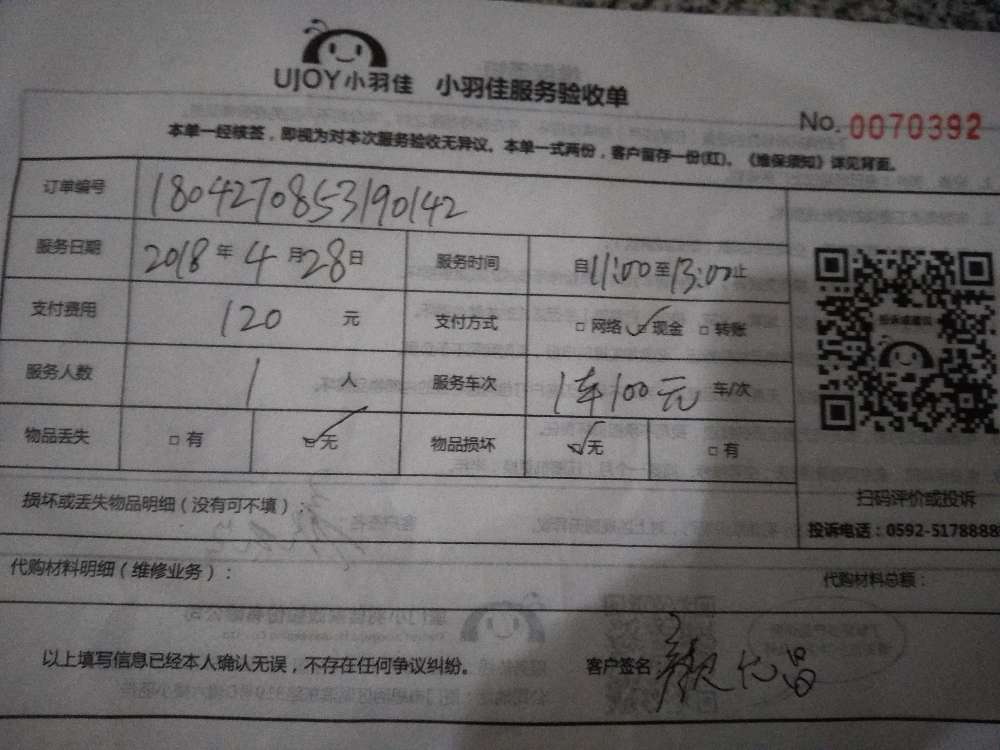 UJOY小羽佳 小羽佳服务验收单
No. 0070392
本单一经核签，即视为对本次服务验收无异议。本单一式两份，客户留存一份(红)。《维保须知》详见背面。
订单编号 1804270853190142
服务日期 2018年4月28日 服务时间 自11:00至13:00止
支付费用 120 元 支付方式 □网络 ☑现金 □转账
服务人数 1 人 服务车次 1车100元 车/次
物品丢失 □有 ☑无 物品损坏 ☑无 □有
投诉或建议
扫码评价或投诉
投诉电话：0592-5178888
损坏或丢失物品明细（没有可不填）：
代购材料明细（维修业务）： 代购材料总额：
以上填写信息已经本人确认无误，不存在任何争议纠纷。 客户签名：